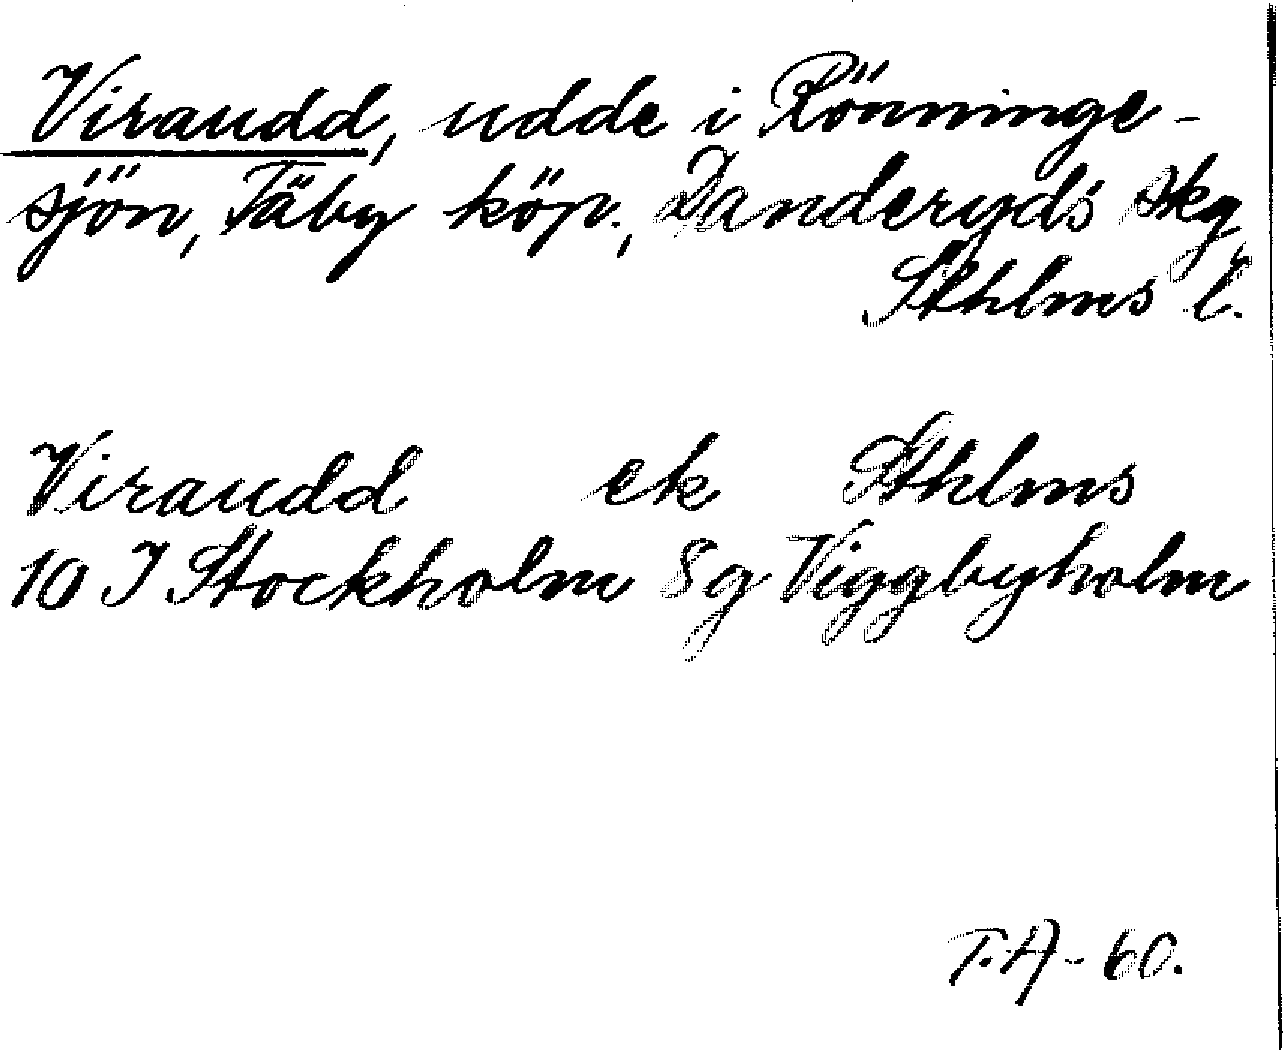 Viraudd, udde i Rönninge-
sjön, Täby köp., Danderyds skg
Sthlms l.
Viraudd ek Sthlms
10 I Stockholm 8g Viggbyholm
T.A-60.